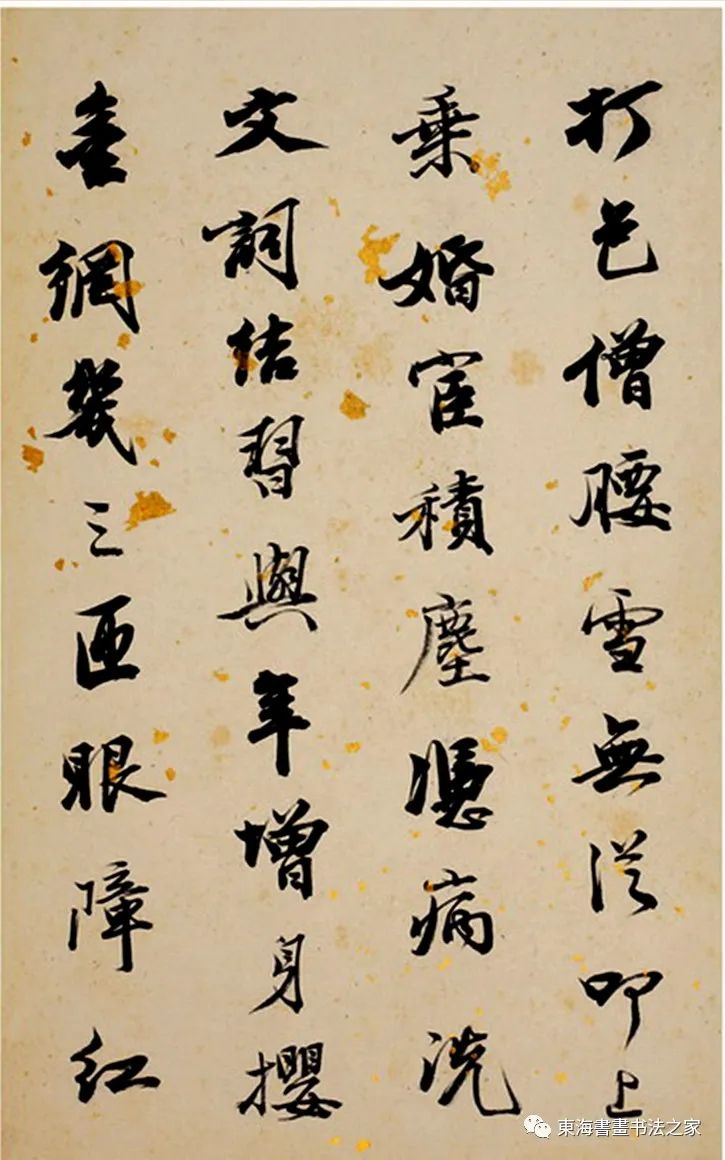 打包僧腰雪無從叩上
乘婚宦積塵憑病洗
文詞結習與年增身攖
金網幾三匝眼障紅
東海書畫书法之家